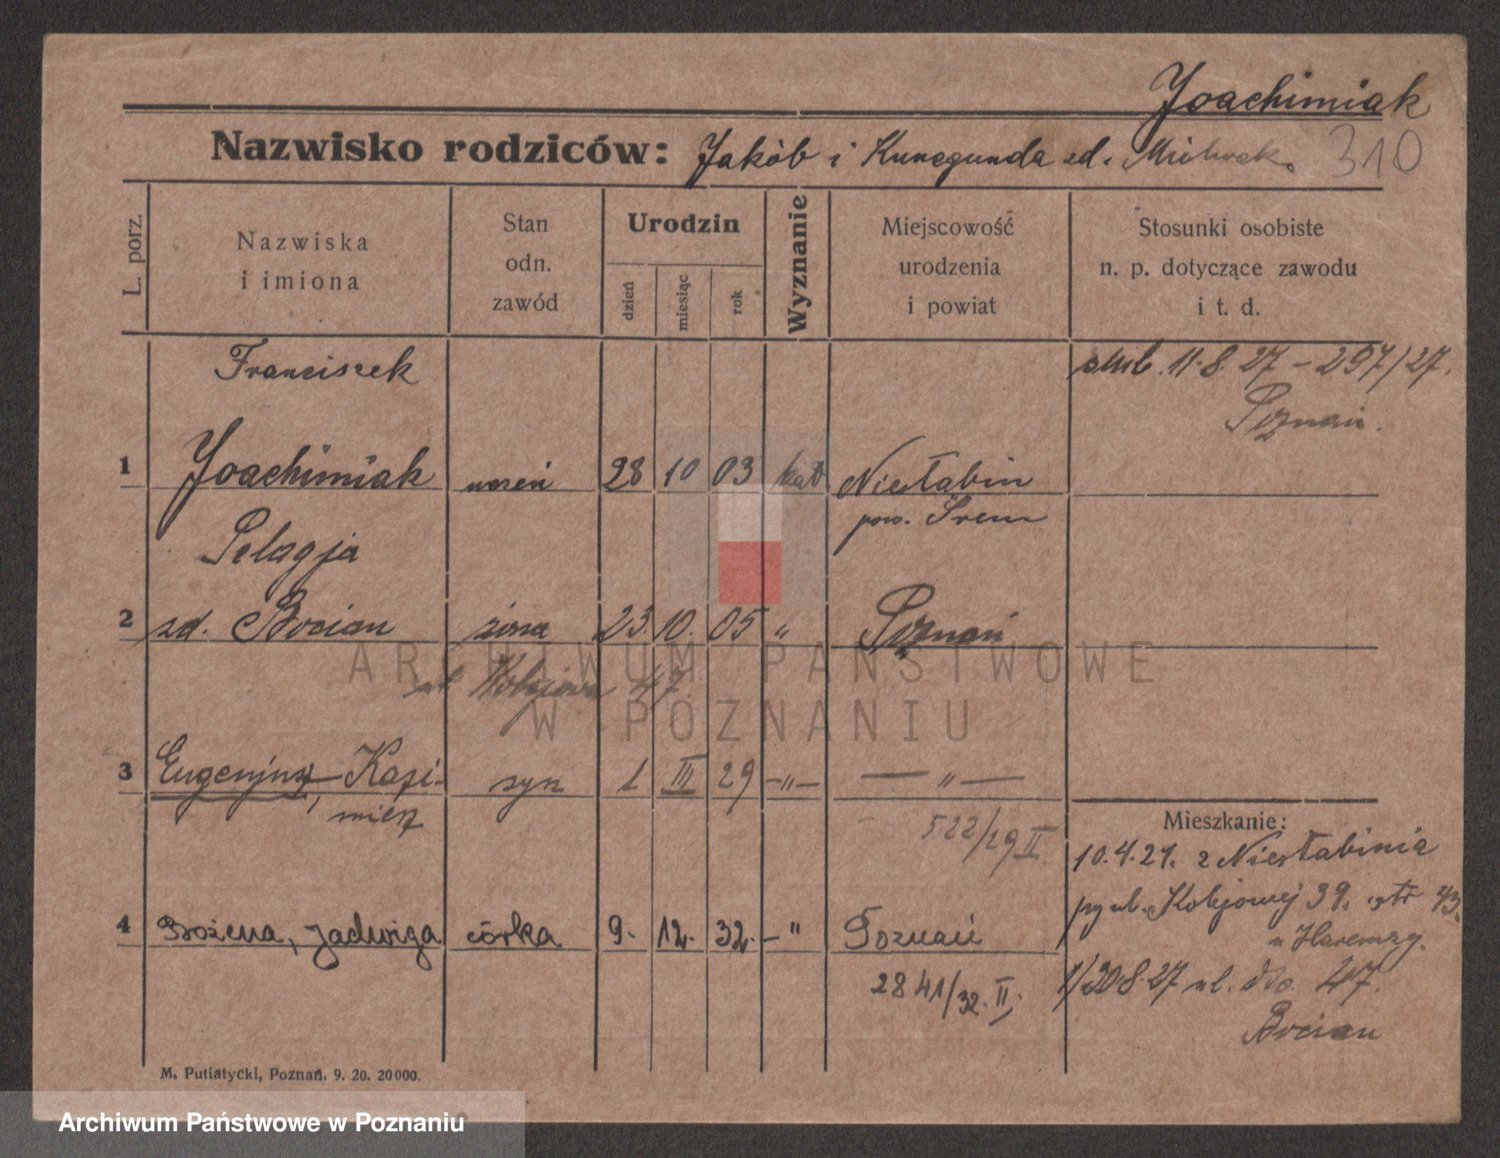 Joachimiak
Nazwisko rodziców: Jakób i Kunegunda zd.
310
L. porz.
Nazwiska
i imiona
Stan
odn.
zawód
Urodzin
dzień
miesiąc
rok
Wyznanie
Miejscowość
urodzenia
i powiat
Stosunki osobiste
n. p. dotyczące zawodu
i t. d.
Franciszek
ślub. 11.8.27 – 297/27.
Poznań.
1 Joachimiak woźń 28 10 03 kat Niesłabin
pow. Śrem
Pelagja
2 zd. Bocian żona 23. 10. 05 " Poznań
ul. 47
3 Eugenjusz, Kazi- syn 1 III 29 –"– — " —
mierz
522/29 II
Mieszkanie:
10.4.21. z Niesłabinia
przy ul. Kolejowej 39. 43.
4 Bożena, Jadwiga córka 9. 12. 32. –" Poznań
2841/32. II.
1/30.8.27 ul. dto. 47.
Bocian
M. Putiatycki, Poznań. 9. 20. 20000.
ARCHIWUM PAŃSTWOWE
W POZNANIU
Archiwum Państwowe w Poznaniu